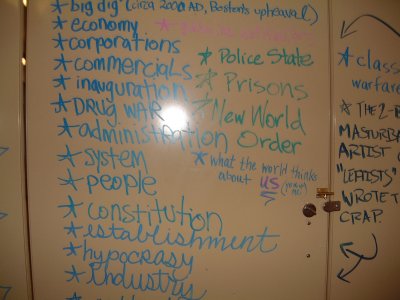 * big dig" (circa 2000 AD, Boston's upheaval)
* economy
* corporations
* commercials
* inauguration
* DRUG WAR
* administration
* system
* people
* constitution
* establishment
* hypocrasy
* industries
* Police State
* Prisons
* New World
Order
* what the world thinks
about us
* class
warfare
* THE 2-B
MASTURBA
ARTIST
"LEFTISTS"
WROTE T
CRAP.